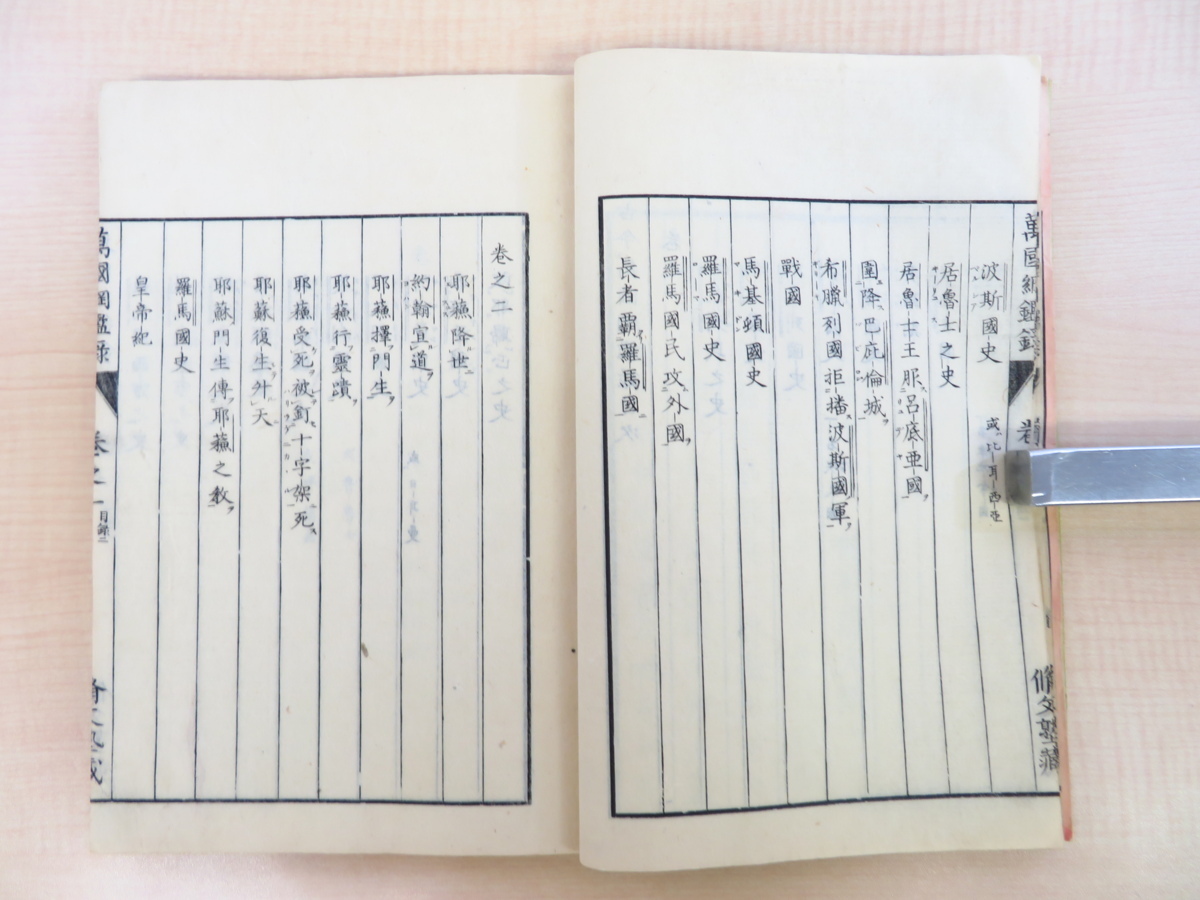 萬國綱鑑錄
波斯國史 或比耳西亞
居魯士之史
居魯士王服呂底亞國
圍降巴庇倫城
希臘列國拒播波斯國軍
戰國
馬基頓國史
羅馬國史
羅馬國民攻外國
長者霸羅馬國
脩文塾藏
卷之二
耶蘇降世
約翰宣道
耶蘇擇門生
耶蘇行靈蹟
耶蘇受死被釘十字架死
耶蘇復生升天
耶蘇門生傳耶蘇之教
羅馬國史
皇帝紀
萬國綱鑑錄
卷之一 目錄二